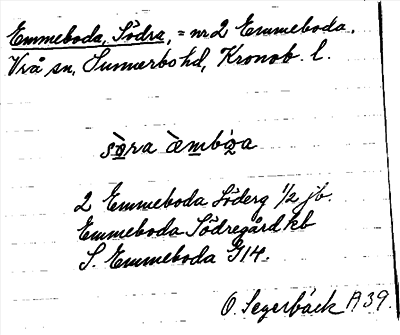 Emmeboda, Södra, = nr 2 Emmeboda.
Vrå sn, Sunnerbo hd, Kronob. l.
sö̀ra æ̀mbίga
2 Emmeboda Söderg 1/2 jb.
Emmeboda Södregård kb
S. Emmeboda G14.
O. Segerbäck A39.